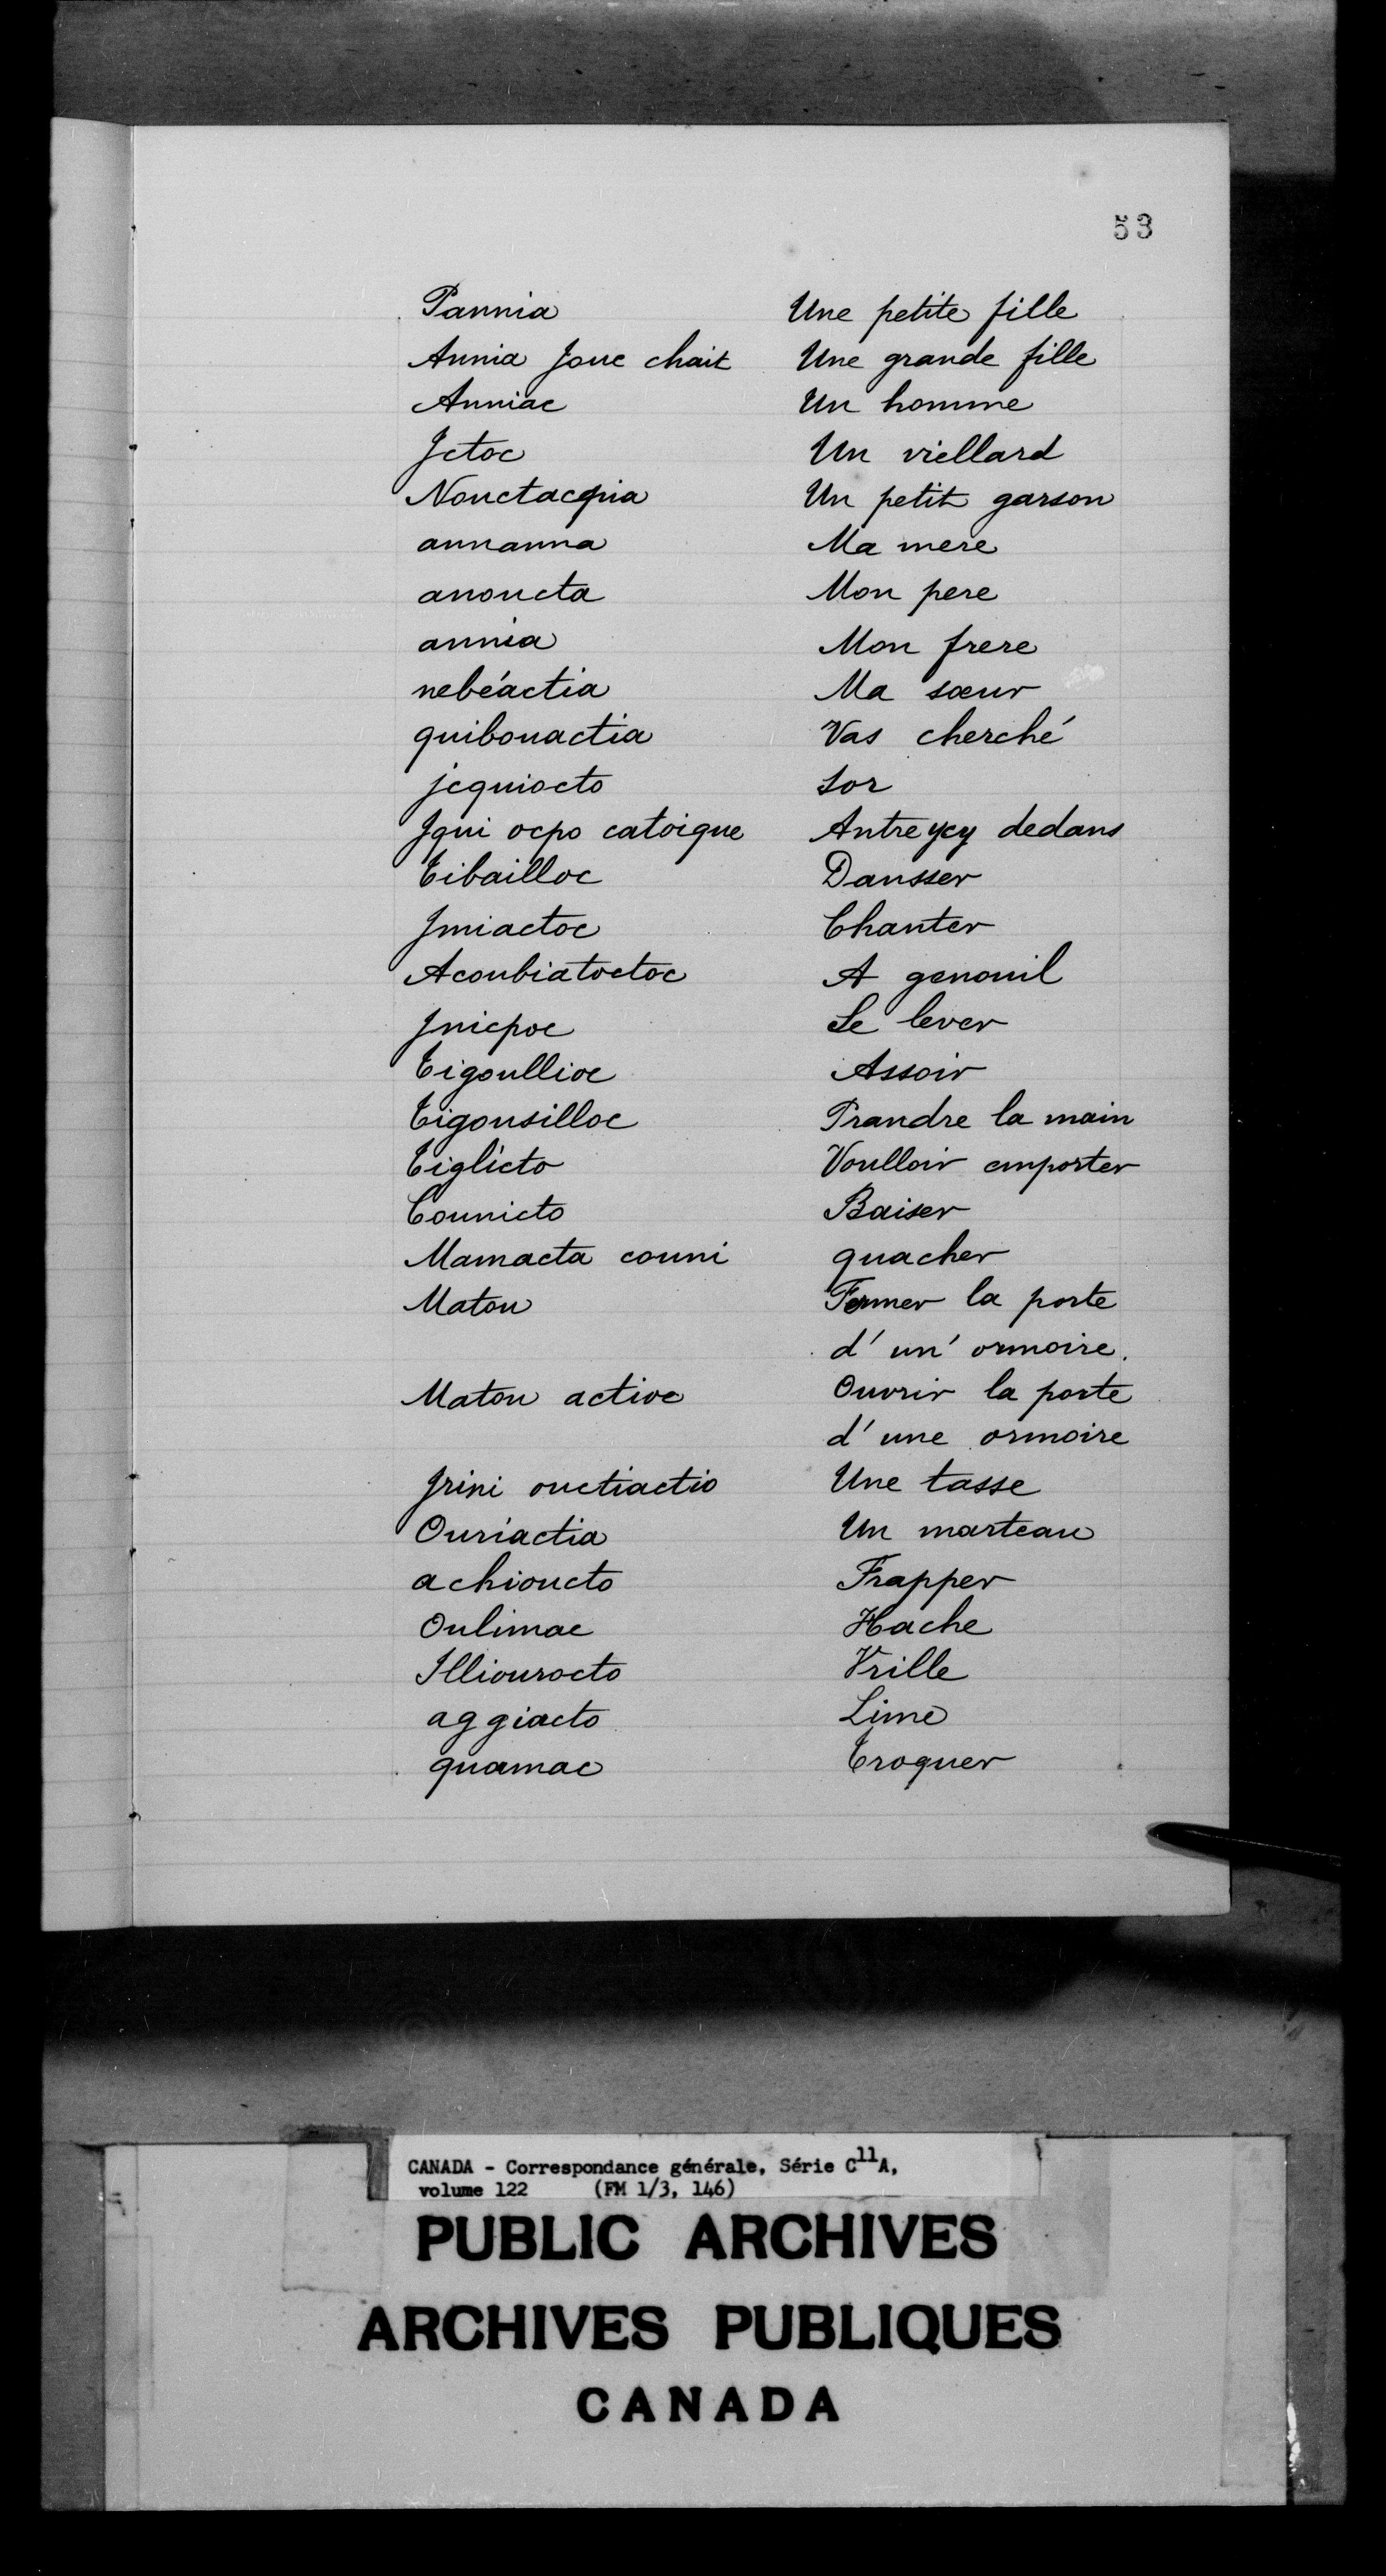 53
Pannia Une petite fille
Annia Jouc chait Une grande fille
Anniac Un homme
Jctoc Un viellard
Nouctacpia Un petit garson
annanna Ma mere
anoucta Mon pere
annia Mon frere
nebéactia Ma sœur
quibouactia Vas cherché
jcquiocto Sor
Jqui ocpo catoique Antre ycy dedans
Tibailloc Dansser
Jmiactoc Chanter
Acoubiatoctoc A genouil
Jnicpoc Se lever
Tigoullioc Assoir
Tigousilloc Prandre la main
Tiglicto Voulloir emporter
Counicto Baiser
Mamacta couni quacher
Matou Fermer la porte
d' un' ormoire.
Matou actioc Ouvrir la porte
d' une ormoire
Jrini ouctiactio Une tasse
Ouriactia Un marteau
achioucto Frapper
Oulimac Hache
Illiourocto Vrille
aggiacto Lime
quamac Troquer
CANADA - Correspondance générale, Série C11A,
volume 122 (FM 1/3, 146)
PUBLIC ARCHIVES
ARCHIVES PUBLIQUES
CANADA